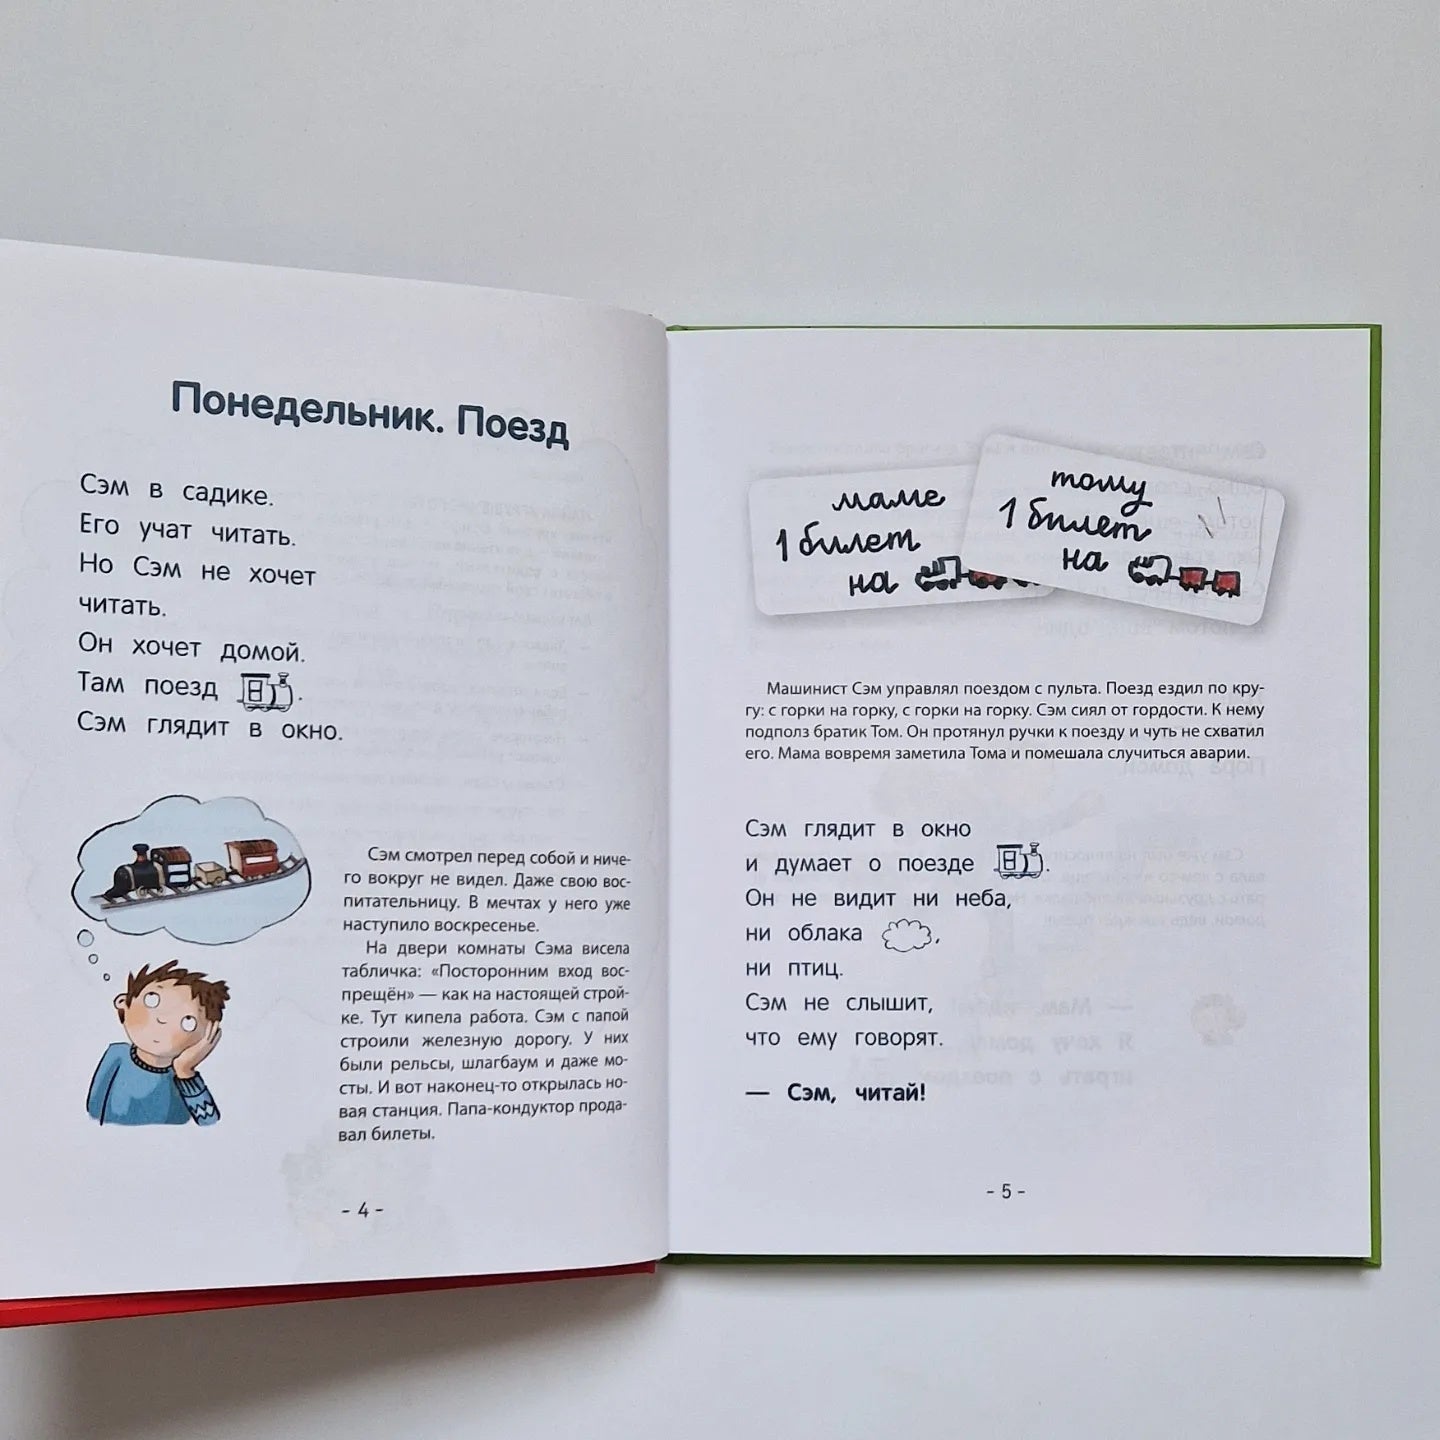 Понедельник. Поезд
Сэм в садике.
Его учат читать.
Но Сэм не хочет
читать.
Он хочет домой.
Там поезд .
Сэм глядит в окно.
Сэм смотрел перед собой и ниче-
го вокруг не видел. Даже свою вос-
питательницу. В мечтах у него уже
наступило воскресенье.
На двери комнаты Сэма висела
табличка: «Посторонним вход вос-
прещён» — как на настоящей строй-
ке. Тут кипела работа. Сэм с папой
строили железную дорогу. У них
были рельсы, шлагбаум и даже мо-
сты. И вот наконец-то открылась но-
вая станция. Папа-кондуктор прода-
вал билеты.
- 4 -
маме
1 билет
на
тому
1 билет
на
Машинист Сэм управлял поездом с пульта. Поезд ездил по кру-
гу: с горки на горку, с горки на горку. Сэм сиял от гордости. К нему
подполз братик Том. Он протянул ручки к поезду и чуть не схватил
его. Мама вовремя заметила Тома и помешала случиться аварии.
Сэм глядит в окно
и думает о поезде .
Он не видит ни неба,
ни облака ,
ни птиц.
Сэм не слышит,
что ему говорят.
— Сэм, читай!
- 5 -